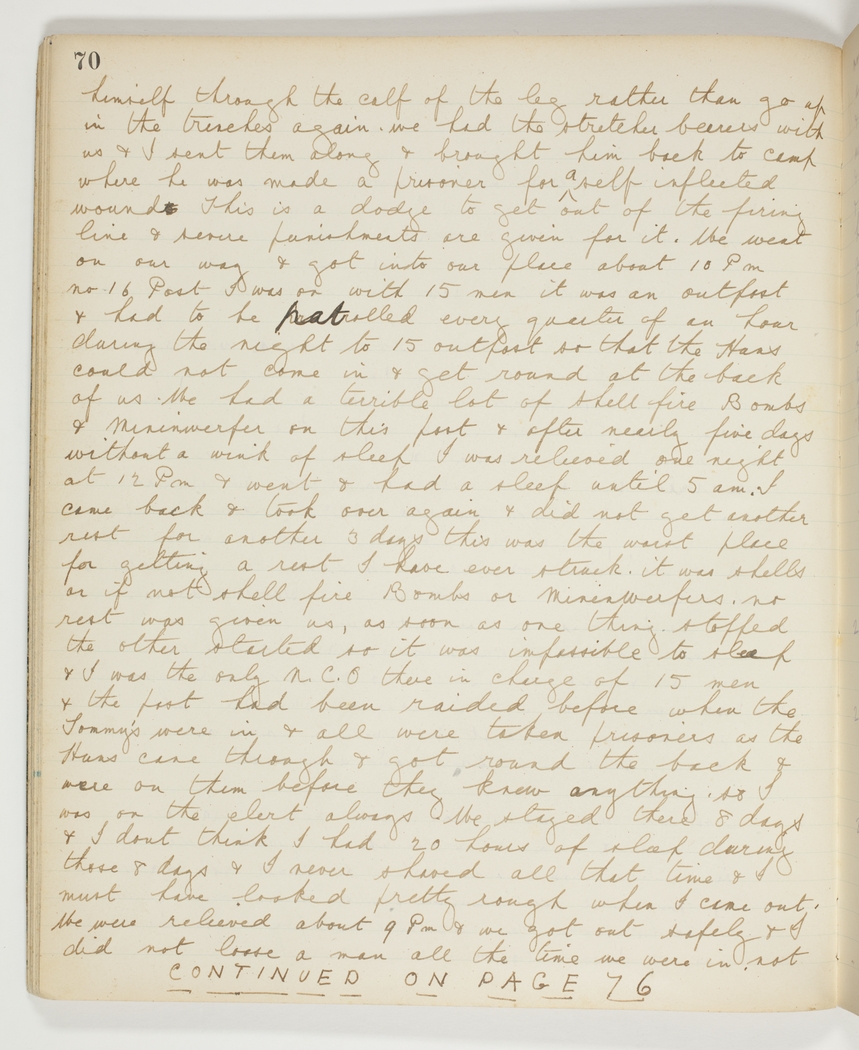 70
himself through the calf of the leg rather than go up
in the trenches again. we had the stretcher bearers with
us & I sent them along & brought him back to camp
where he was made a prisoner for a self inflected
wound. This is a dodge to get out of the firing
line & severe punishments are given for it. We went
on our way & got into our place about 10 Pm
no 16 Post I was on with 15 men it was an outpost
& had to be patrolled every quarter of an hour
during the night to 15 outpost so that the Huns
could not come in & get round at the back
of us. We had a terrible lot of shell fire Bombs
& Mininwerfer on this post & after nearly five days
without a wink of sleep I was relieved one night
at 12 Pm & went & had a sleep until 5 am. I
came back & took over again & did not get another
rest for another 3 days this was the waist place
for getting a rest I have ever struck. it was shells
or if not shell fire Bombs or Mininwerfers. no
rest was given us, as soon as one thing stopped
the other started so it was impossible to sleep
& I was the only N.C.O there in charge of 15 men
& the post had been raided before when the
Tommy's were in & all were taken prisoners as the
Huns came through & got round the back &
were on them before they knew anything. so I
was on the alert always We stayed there 8 days
& I dont think I had 20 hours of sleep during
those 8 days & I never shaved all that time & I
must have looked pretty rough when I came out.
We were relieved about 9 Pm & we got out safely & I
did not loose a man all the time we were in. not
CONTINUED ON PAGE 76